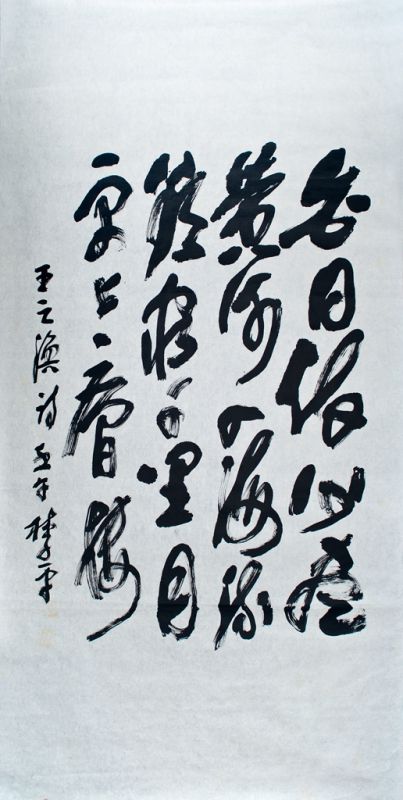 白日依山盡
黄河入海流
欲窮千里目
更上一層樓
王之渙詩